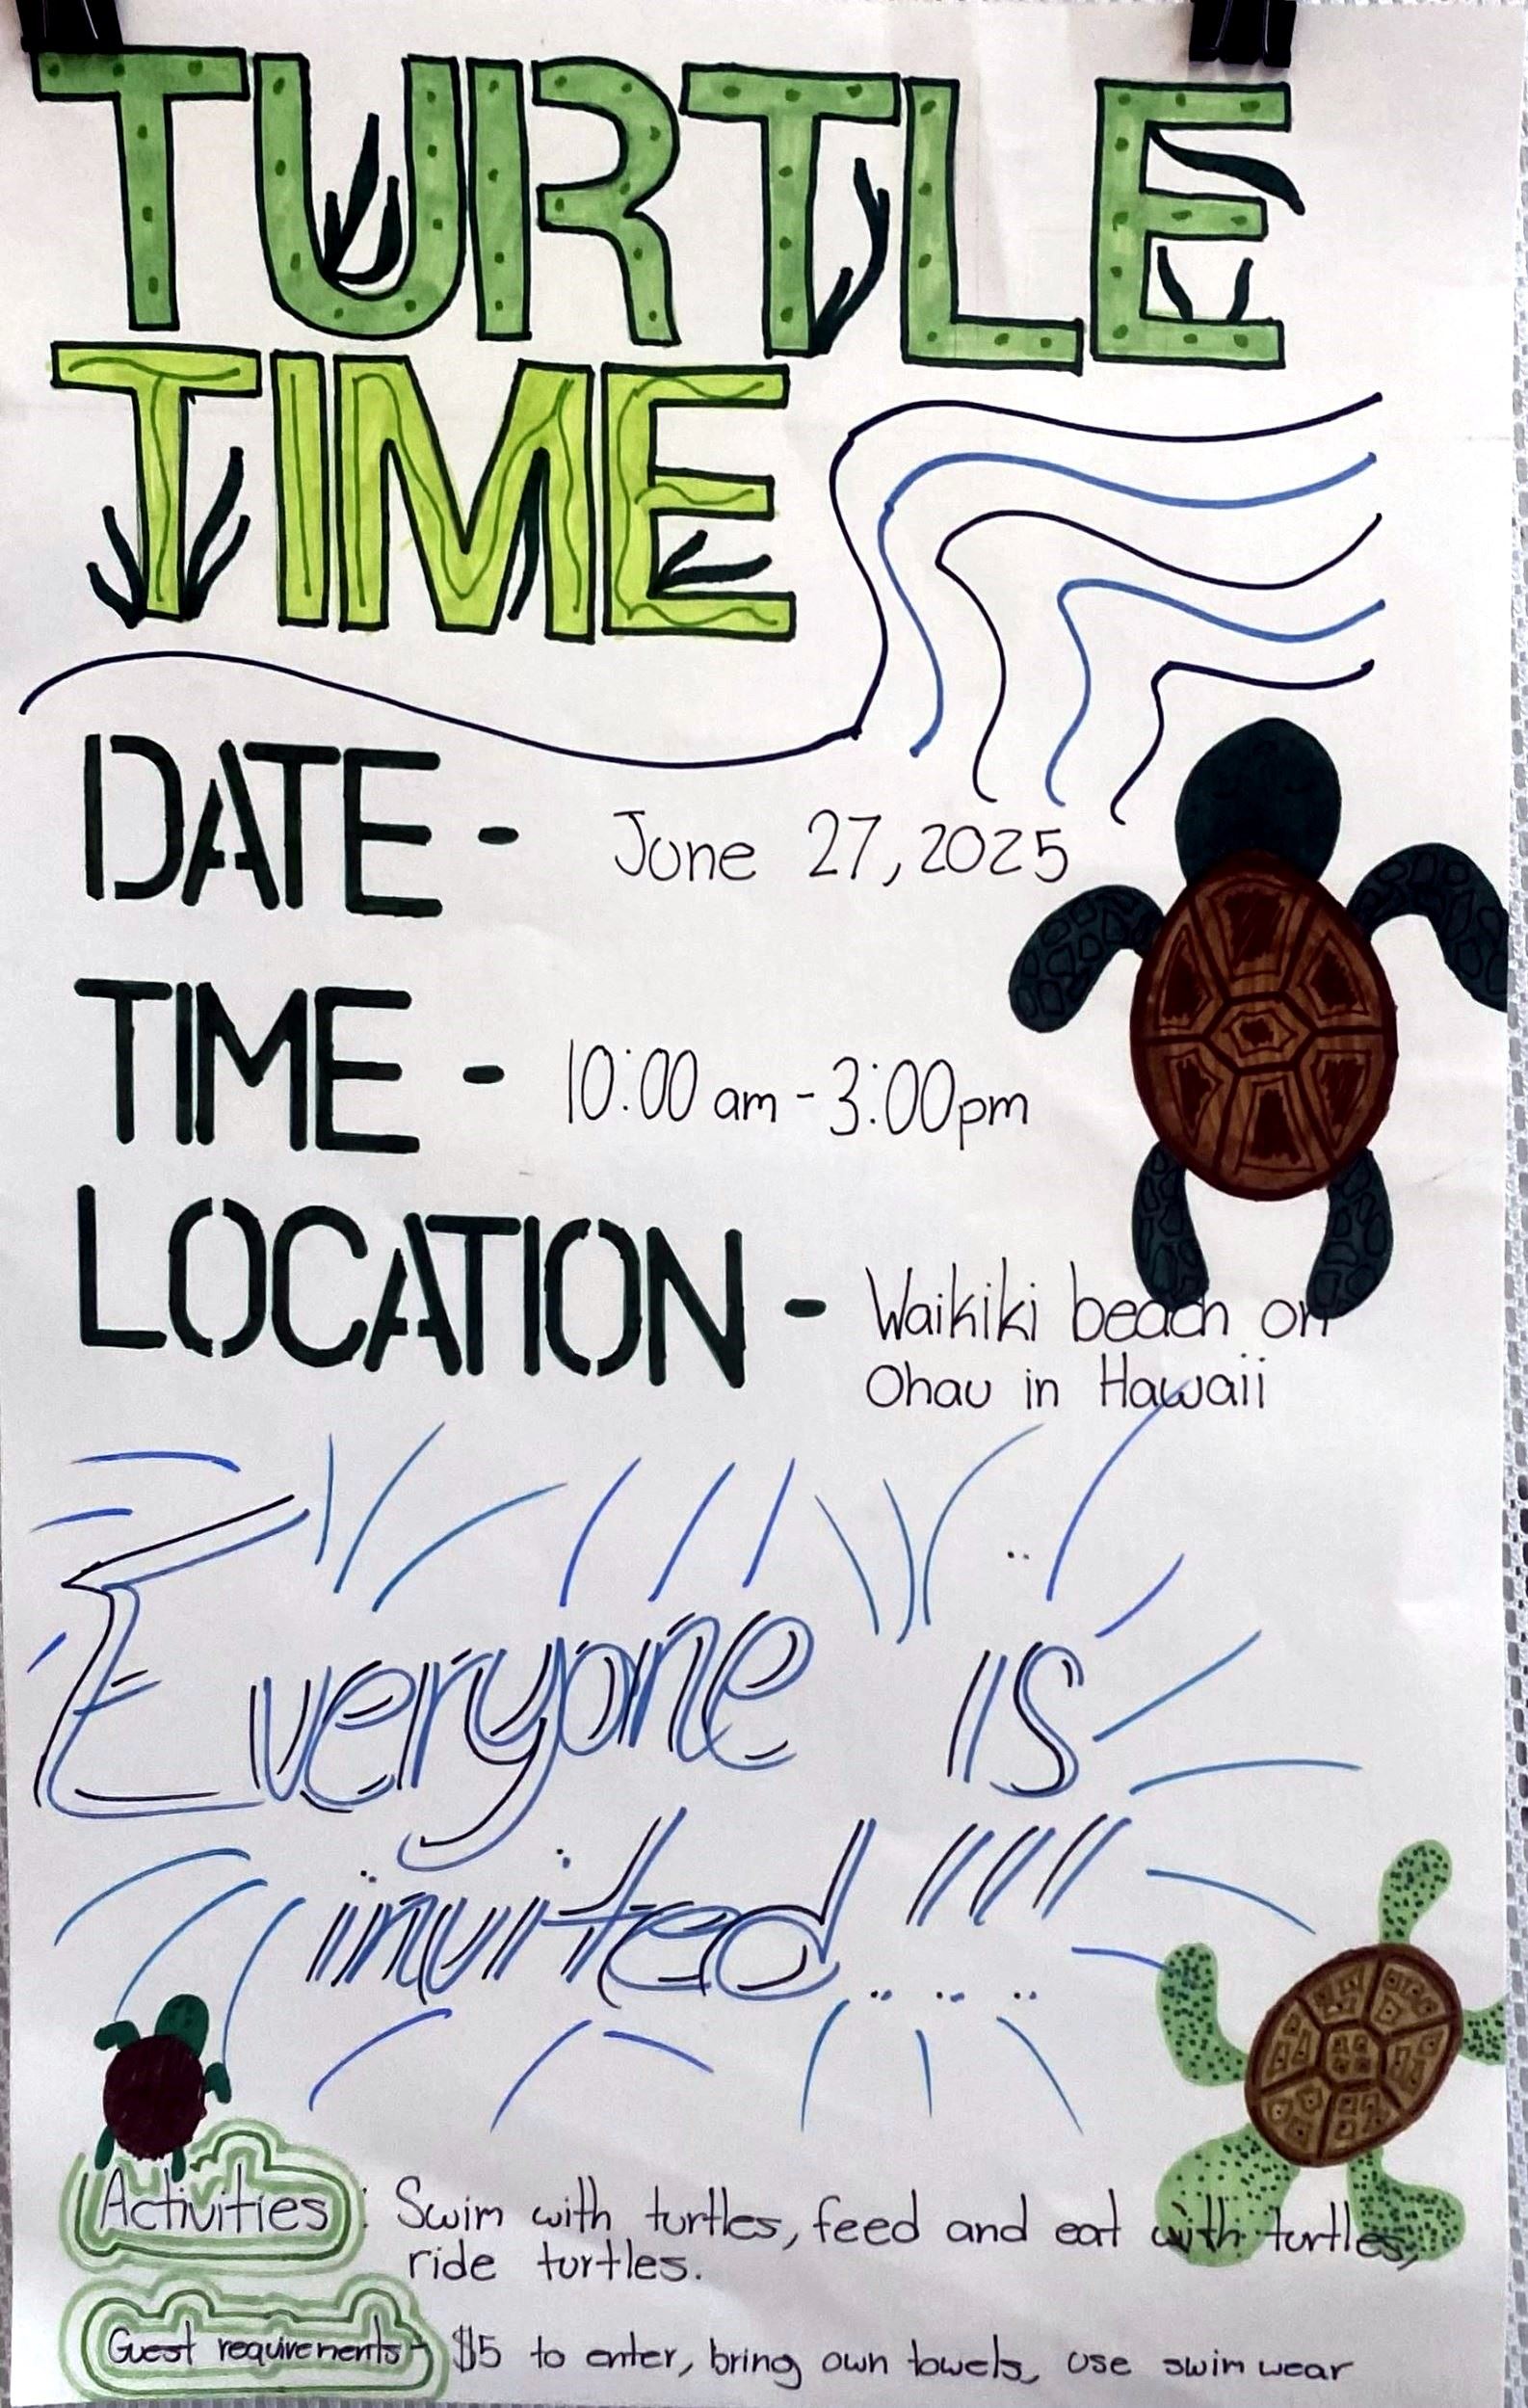 TURTLE
TIME
DATE - June 27, 2025
TIME - 10:00 am - 3:00pm
LOCATION - Waikiki beach on
Ohau in Hawaii
Everyone is
invited....!!!!
Activities: Swim with turtles, feed and eat with turtles,
ride turtles.
Guest requirements - $5 to enter, bring own towels, use swim wear